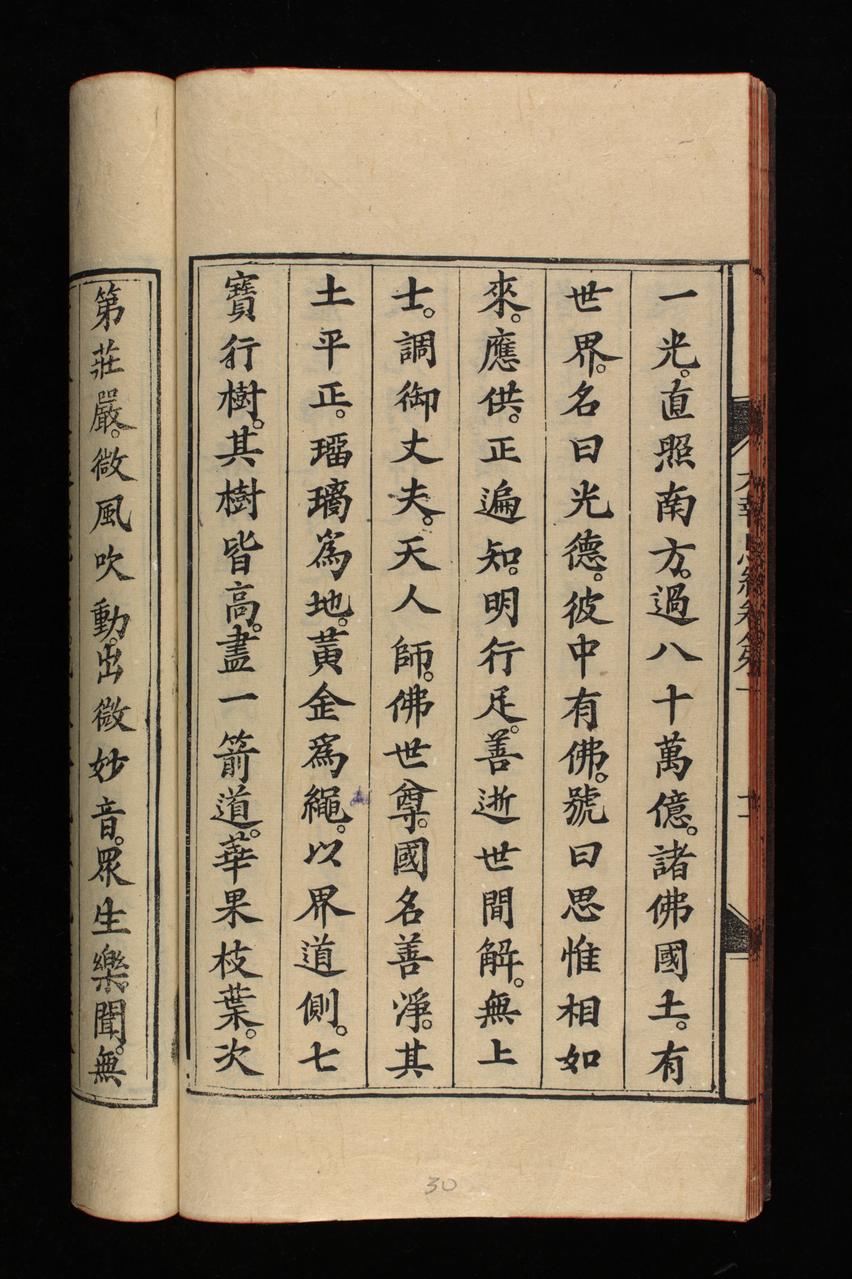 一光。直照南方。過八十萬億。諸佛國土。有
世界。名曰光德。彼中有佛。號曰思惟相如
來。應供。正遍知。明行足。善逝世間解。無上
士。調御丈夫。天人師。佛世尊。國名善淨。其
土平正。瑠璃爲地。黃金爲繩。以界道側。七
寶行樹。其樹皆高。盡一箭道。華果枝葉。次
第莊嚴。微風吹動。出微妙音。眾生樂。聞。無
30